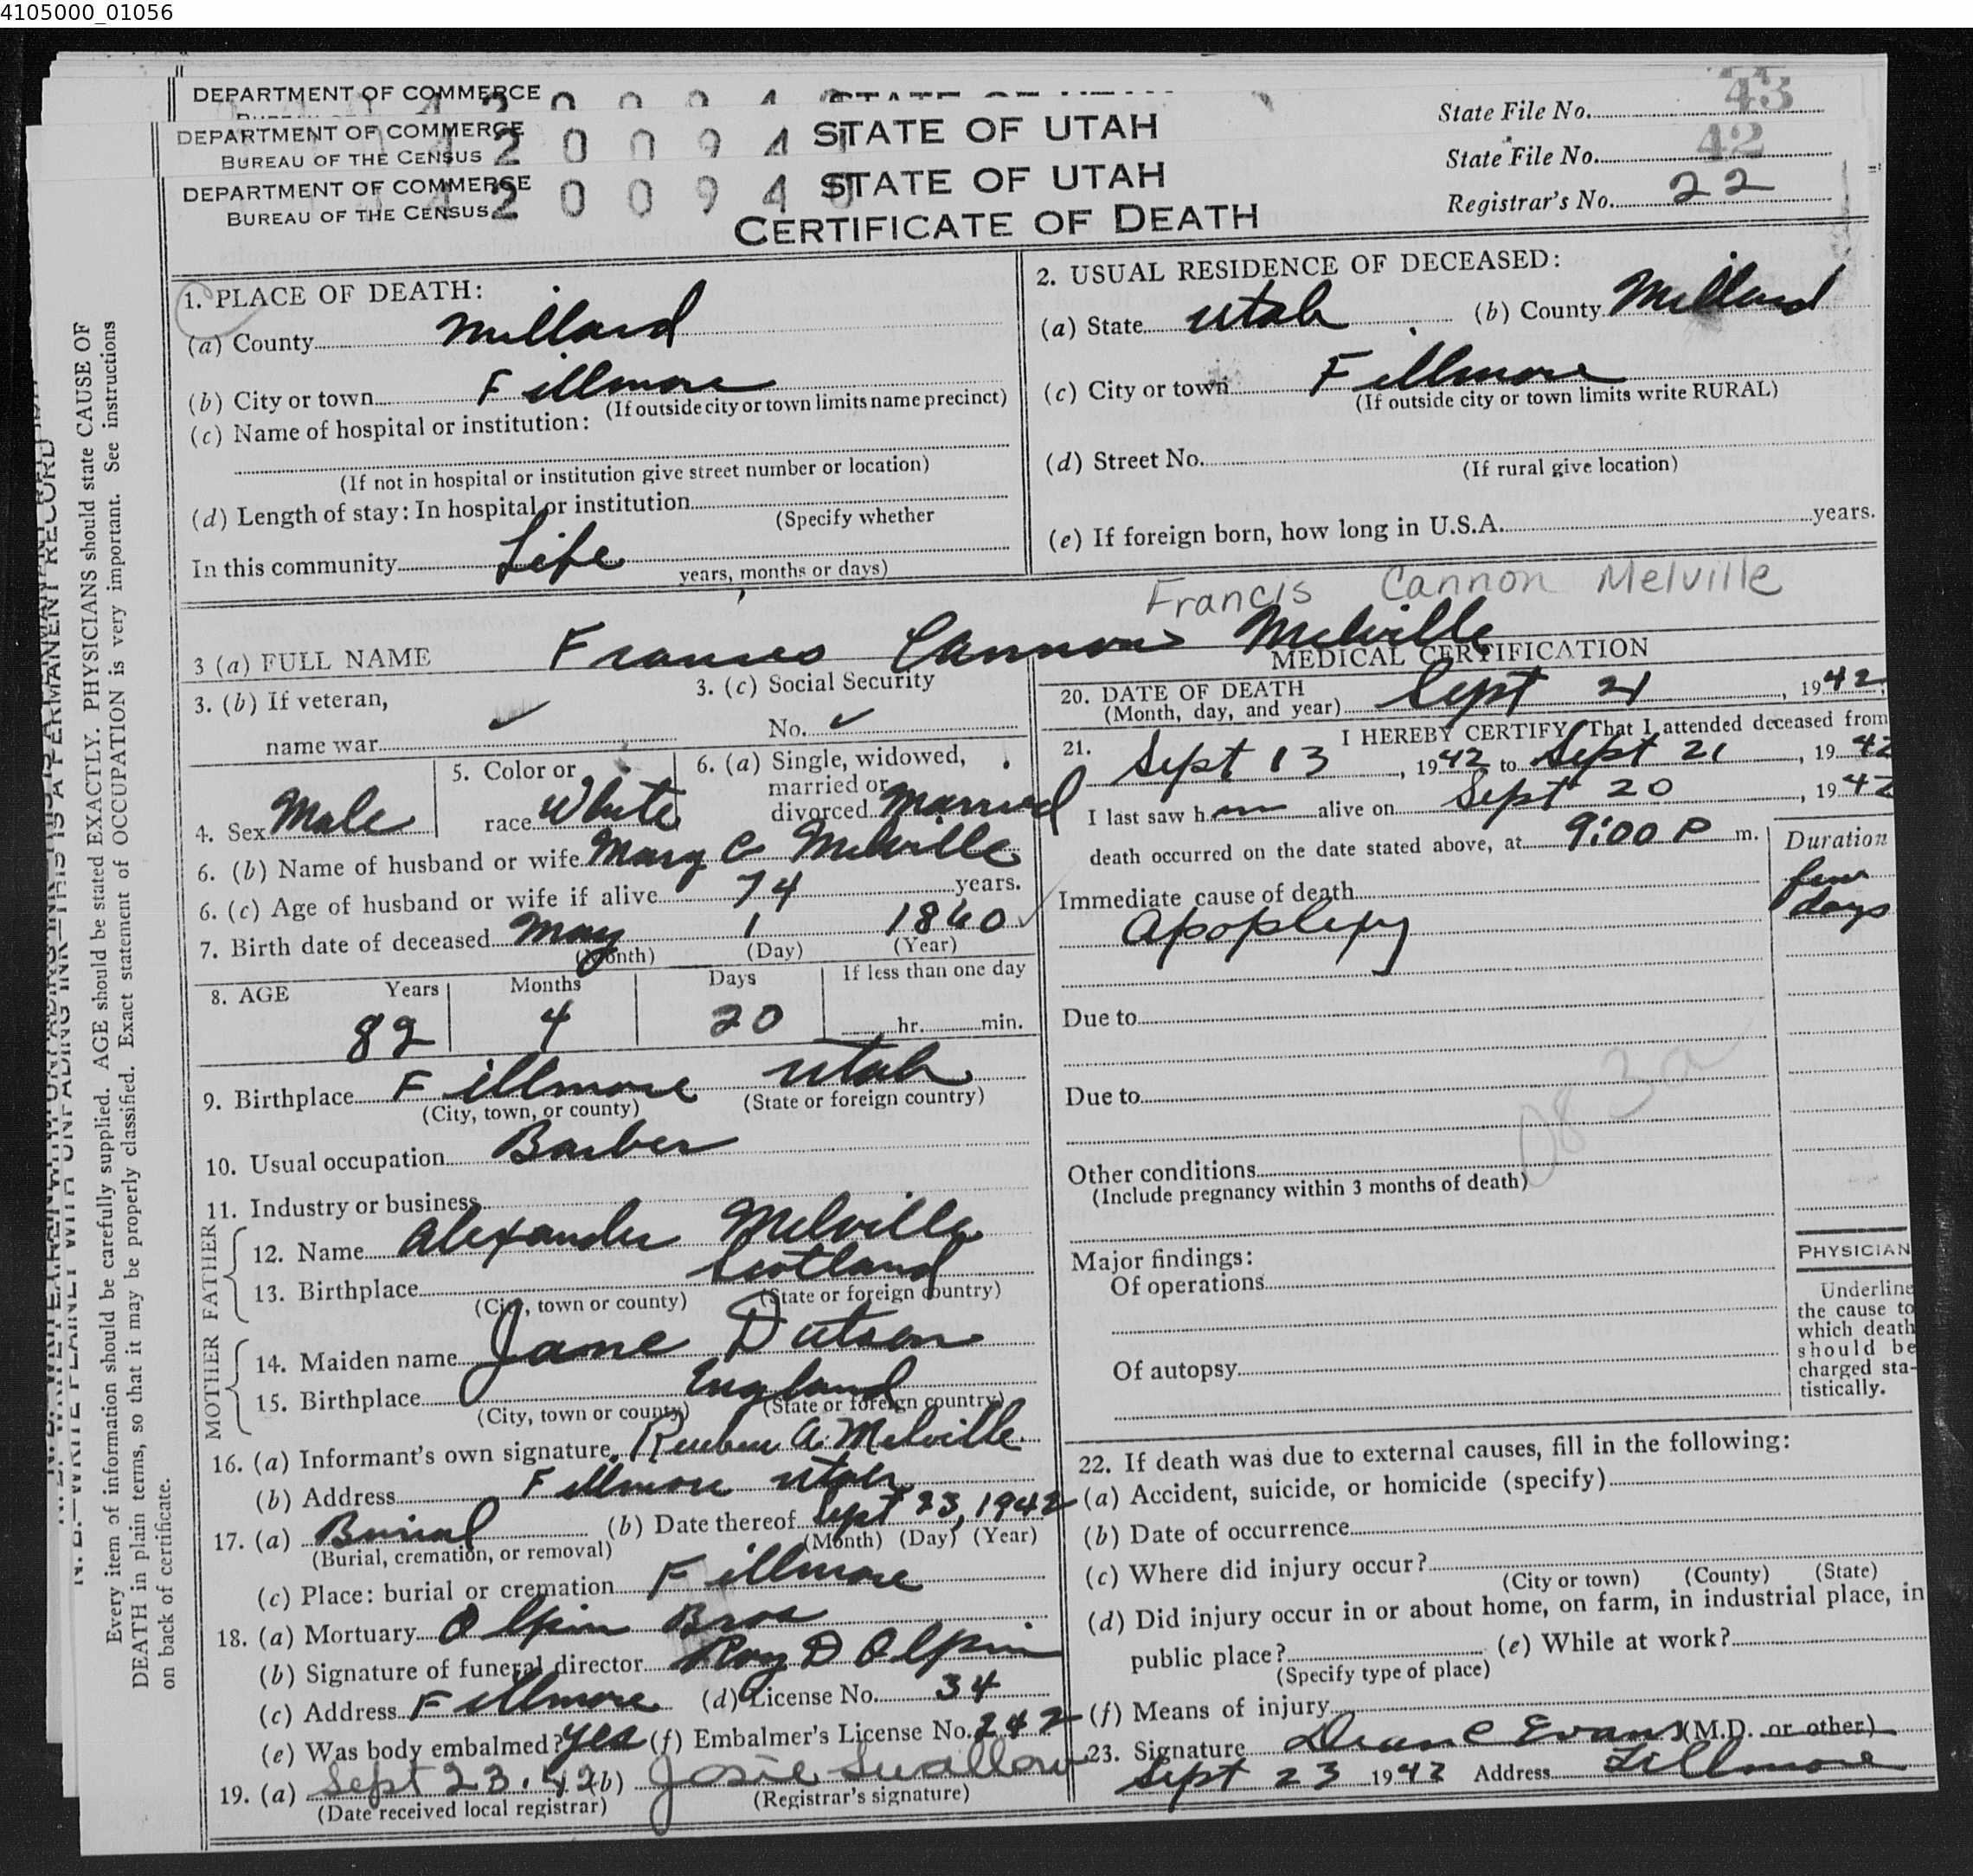 4105000_01056
DEPARTMENT OF COMMERCE
State File No. 43
DEPARTMENT OF COMMERCE STATE OF UTAH
BUREAU OF THE CENSUS 2 0 0 9 4
State File No. 42
DEPARTMENT OF COMMERCE STATE OF UTAH
BUREAU OF THE CENSUS 2 0 0 9 4 0
Registrar's No. 22
CERTIFICATE OF DEATH
N. B.—WRITE PLAINLY WITH UNFADING INK—THIS IS A PERMANENT RECORD
Every item of information should be carefully supplied. AGE should be stated EXACTLY. PHYSICIANS should state CAUSE OF
DEATH in plain terms, so that it may be properly classified. Exact statement of OCCUPATION is very important. See instructions
on back of certificate.
1. PLACE OF DEATH:
(a) County Millard
(b) City or town Fillmore
(If outside city or town limits name precinct)
(c) Name of hospital or institution:
(If not in hospital or institution give street number or location)
(d) Length of stay: In hospital or institution
(Specify whether
In this community Life
years, months or days)
2. USUAL RESIDENCE OF DECEASED:
(a) State Utah (b) County Millard
(c) City or town Fillmore
(If outside city or town limits write RURAL)
(d) Street No.
(If rural give location)
(e) If foreign born, how long in U.S.A. years.
Francis Cannon Melville
3 (a) FULL NAME Frances Cannon Melville
3. (b) If veteran,
name war
3. (c) Social Security
No.
4. Sex Male
5. Color or
race White
6. (a) Single, widowed,
married or
divorced Married
6. (b) Name of husband or wife Mary C Melville
6. (c) Age of husband or wife if alive 74 years.
7. Birth date of deceased May 1 1860
(Month) (Day) (Year)
8. AGE Years Months Days If less than one day
82 4 20 hr. min.
9. Birthplace Fillmore Utah
(City, town, or county) (State or foreign country)
10. Usual occupation Barber
11. Industry or business
FATHER
12. Name Alexander Melville
13. Birthplace Scotland
(City, town or county) (State or foreign country)
MOTHER
14. Maiden name Jane Dutson
15. Birthplace England
(City, town or county) (State or foreign country)
16. (a) Informant's own signature Reuben A. Melville
(b) Address Fillmore Utah
17. (a) Burial (b) Date thereof Sept 23, 1942
(Burial, cremation, or removal) (Month) (Day) (Year)
(c) Place: burial or cremation Fillmore
18. (a) Mortuary Olpin Bros
(b) Signature of funeral director Roy D Olpin
(c) Address Fillmore (d) License No. 34
(e) Was body embalmed? Yes (f) Embalmer's License No. 242
19. (a) Sept 23. 42 (b) Josie Swallow
(Date received local registrar) (Registrar's signature)
MEDICAL CERTIFICATION
20. DATE OF DEATH
(Month, day, and year) Sept 21, 1942
21. I HEREBY CERTIFY, That I attended deceased from
Sept 13, 1942 to Sept 21, 1942
I last saw him alive on Sept 20, 1942
death occurred on the date stated above, at 9:00 P m.
Duration
Immediate cause of death few
Apoplexy days
Due to
Due to
083a
Other conditions
(Include pregnancy within 3 months of death)
Major findings:
Of operations
Of autopsy
PHYSICIAN
Underline
the cause to
which death
should be
charged sta-
tistically.
22. If death was due to external causes, fill in the following:
(a) Accident, suicide, or homicide (specify)
(b) Date of occurrence
(c) Where did injury occur?
(City or town) (County) (State)
(d) Did injury occur in or about home, on farm, in industrial place, in
public place? (e) While at work?
(Specify type of place)
(f) Means of injury
23. Signature Dean C Evans (M.D. or other)
Sept 23 1942 Address Fillmore